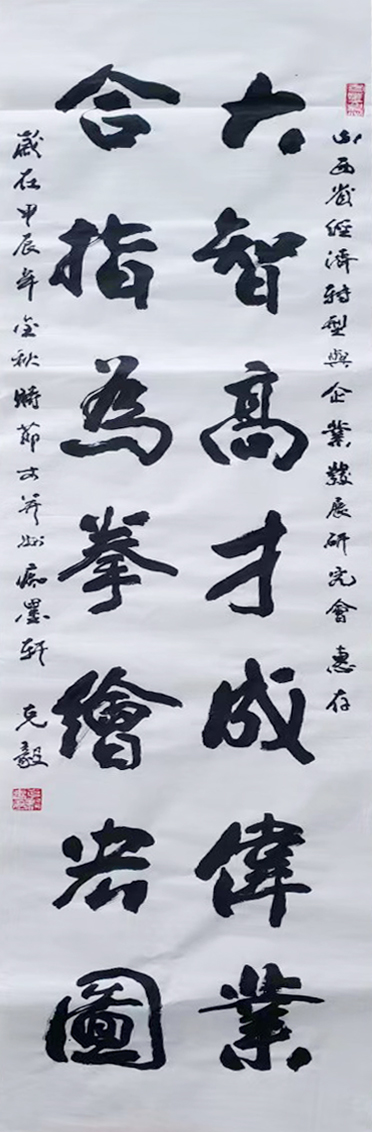 山西省經濟轉型與企業發展研究會 惠存
大智高才成偉業
合指為拳繪宏圖
歲在甲辰年金秋時節於并州痴墨軒 克毅